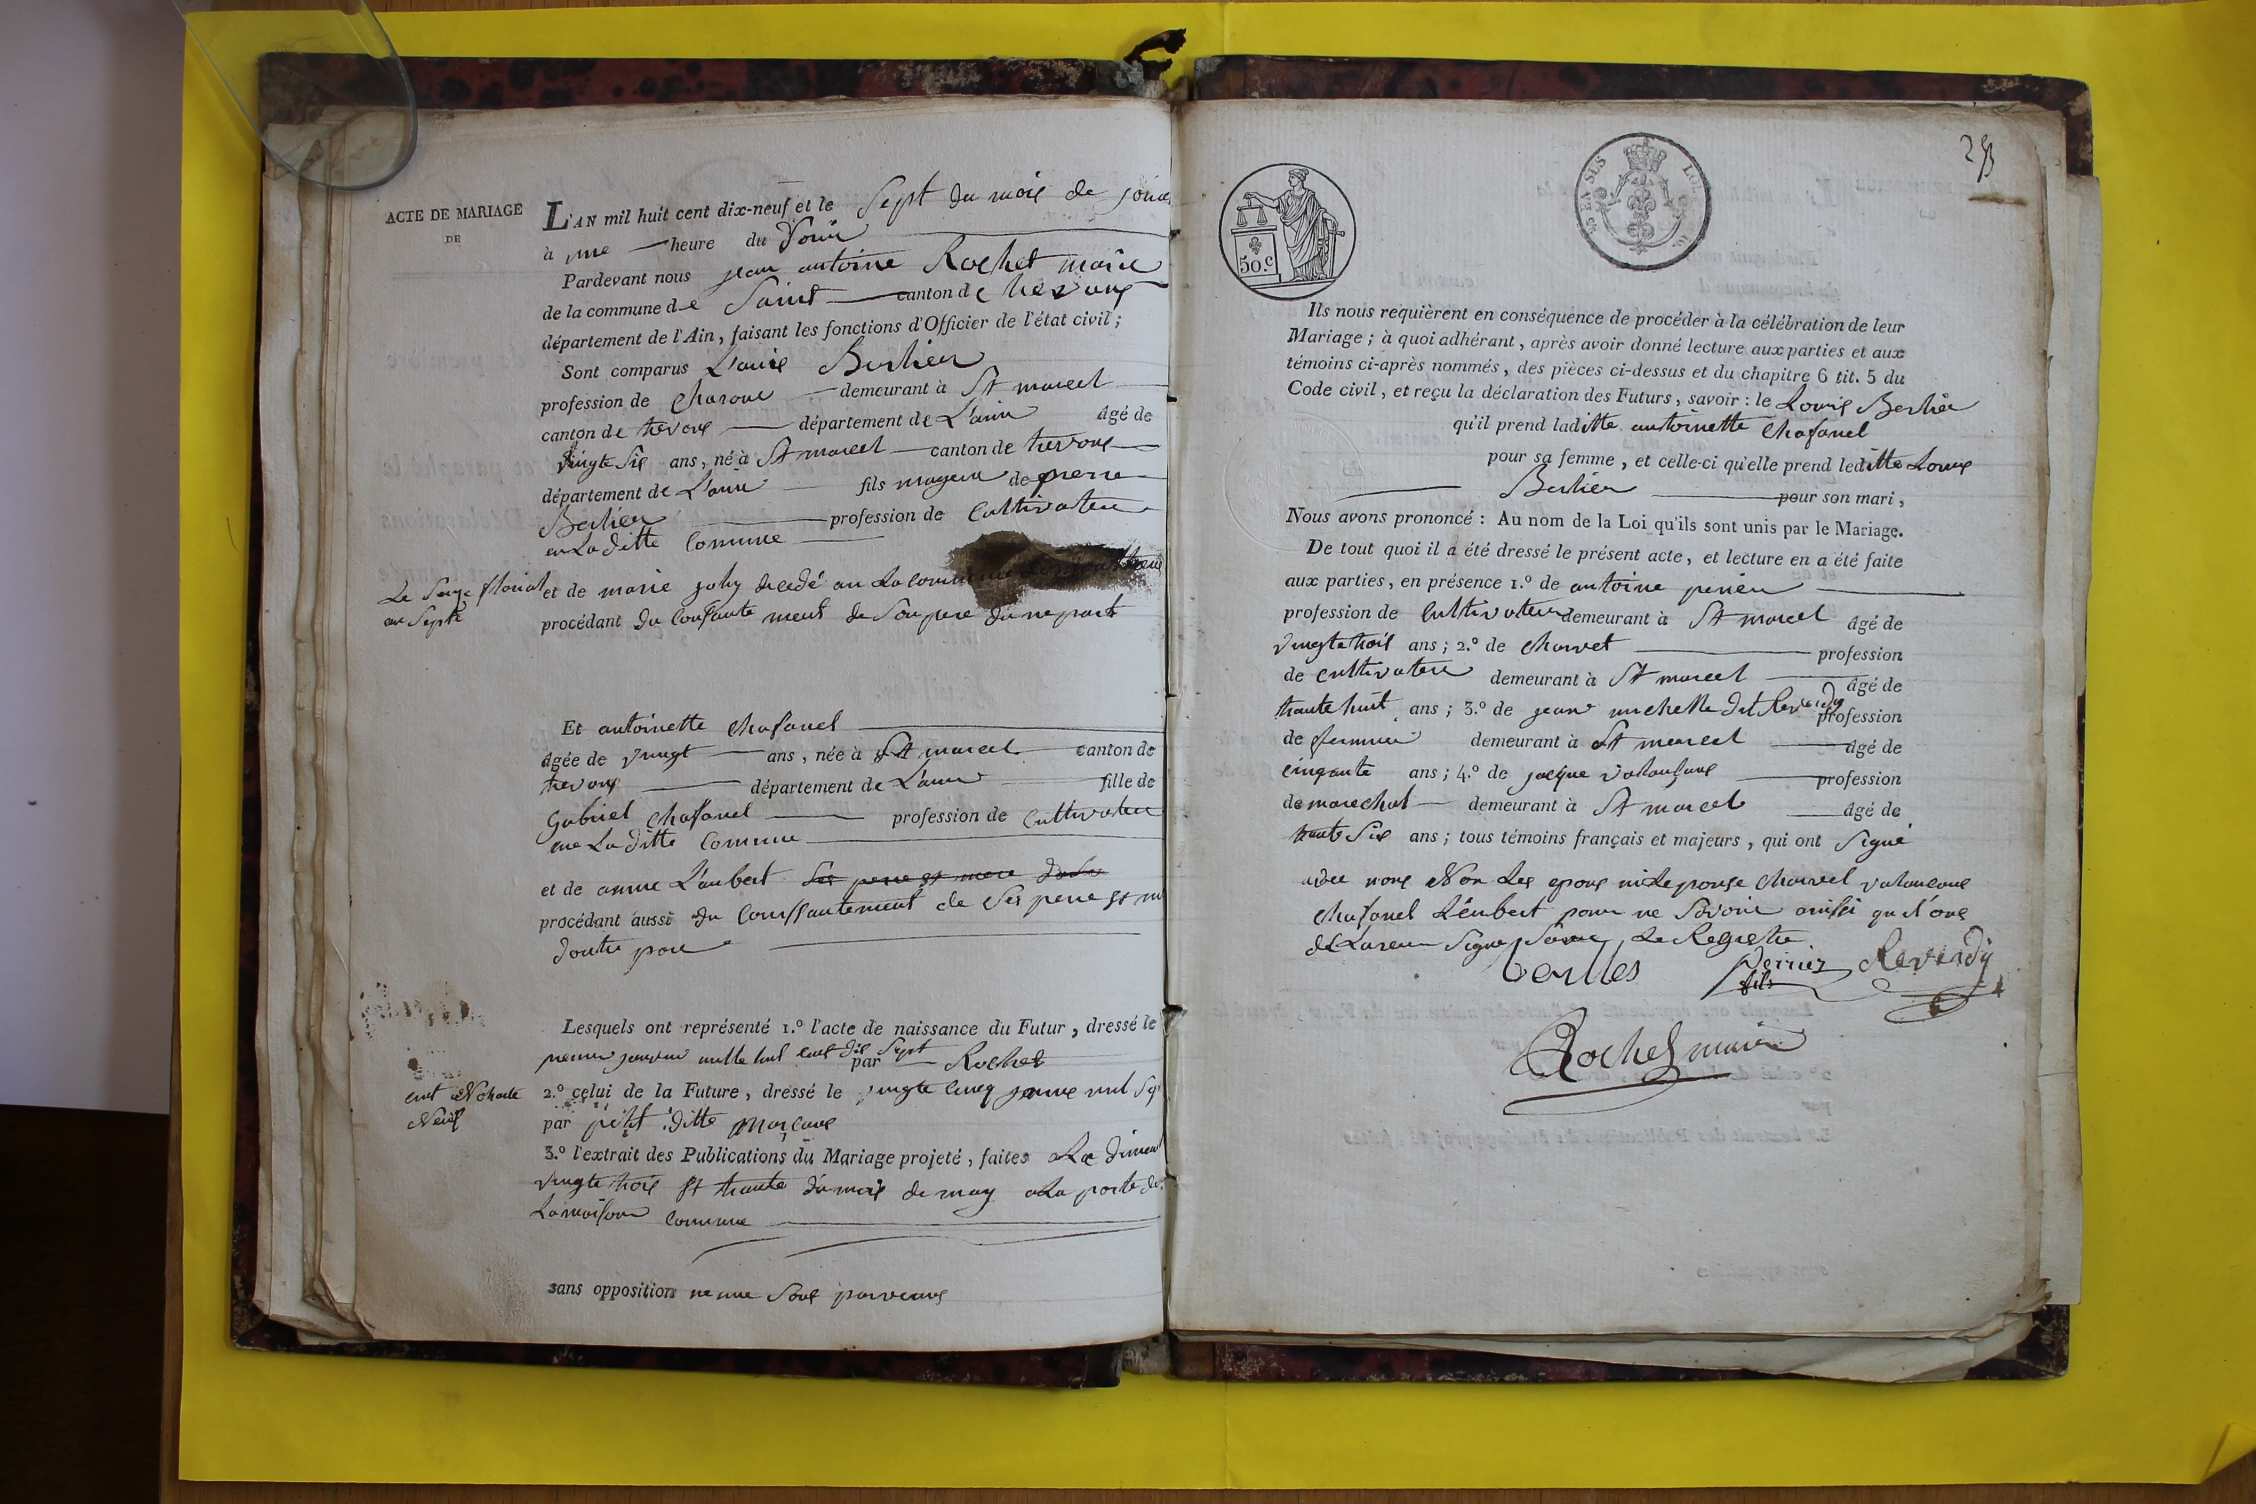 ACTE DE MARIAGE
DE
L'AN mil huit cent dix-neuf et le Sept du mois de
à une heure du Soir
Pardevant nous jean antoine Rochet maire
de la commune de Saint canton de trevoux
département de l'Ain, faisant les fonctions d'Officier de l'état civil;
Sont comparus Louis Berlier
profession de charon demeurant à St marcel
canton de trevoux département de L'ain âgé de
vingte Six ans, né à St marcel canton de trevoux
département de L'ain fils mageur de pierre
Berlier profession de Cultivateur
en La ditte Commune
et de marie joly decedé
Le Seize florial
an Septe
procédant du Consante ment de Son pere d'une part
Et antoinette Chafanel
âgée de vingt ans, née à St marcel canton de
trevoux département de L'ain fille de
Gabriel Chafanel profession de Cultivateur
en La ditte Commune
et de anne L'aubert Ses pere et mere
procédant aussi du Conssantement de Ses pere et
d'autre part
Lesquels ont représenté 1.º l'acte de naissance du Futur, dressé le
mille huit cent dix Sept par Rochet
2.º celui de la Future, dressé le vingte cinq mil Sep
cent
Neuf
par petit ditte
3.º l'extrait des Publications du Mariage projeté, faites
vingte trois et trante du mois de may a La porte de
La maison Commune
sans opposition
25
50.c
LOI
Ils nous requièrent en conséquence de procéder à la célébration de leur
Mariage; à quoi adhérant, après avoir donné lecture aux parties et aux
témoins ci-après nommés, des pièces ci-dessus et du chapitre 6 tit. 5 du
Code civil, et reçu la déclaration des Futurs, savoir: le Louis Berlier
qu'il prend laditte antoinette Chafanel
pour sa femme, et celle-ci qu'elle prend leditte Louis
Berlier pour son mari,
Nous avons prononcé: Au nom de la Loi qu'ils sont unis par le Mariage.
De tout quoi il a été dressé le présent acte, et lecture en a été faite
aux parties, en présence 1.º de antoine perier
profession de Cultivateur demeurant à St marcel âgé de
vingte trois ans; 2.º de Charvet profession
de cultivateur demeurant à St marcel âgé de
trante huit ans; 3.º de jean michelle dit Reverdy profession
de fermier demeurant à St marcel âgé de
cinqante ans; 4.º de jacque profession
de marechal demeurant à St marcel âgé de
trante Six ans; tous témoins français et majeurs, qui ont Signé
avec nous Non Les epoux ni Lepouse Charvet
Chafanel L'aubert pour ne Savoir
Signe Le Registre
Perrier fils
Reverdy
Rochet maire